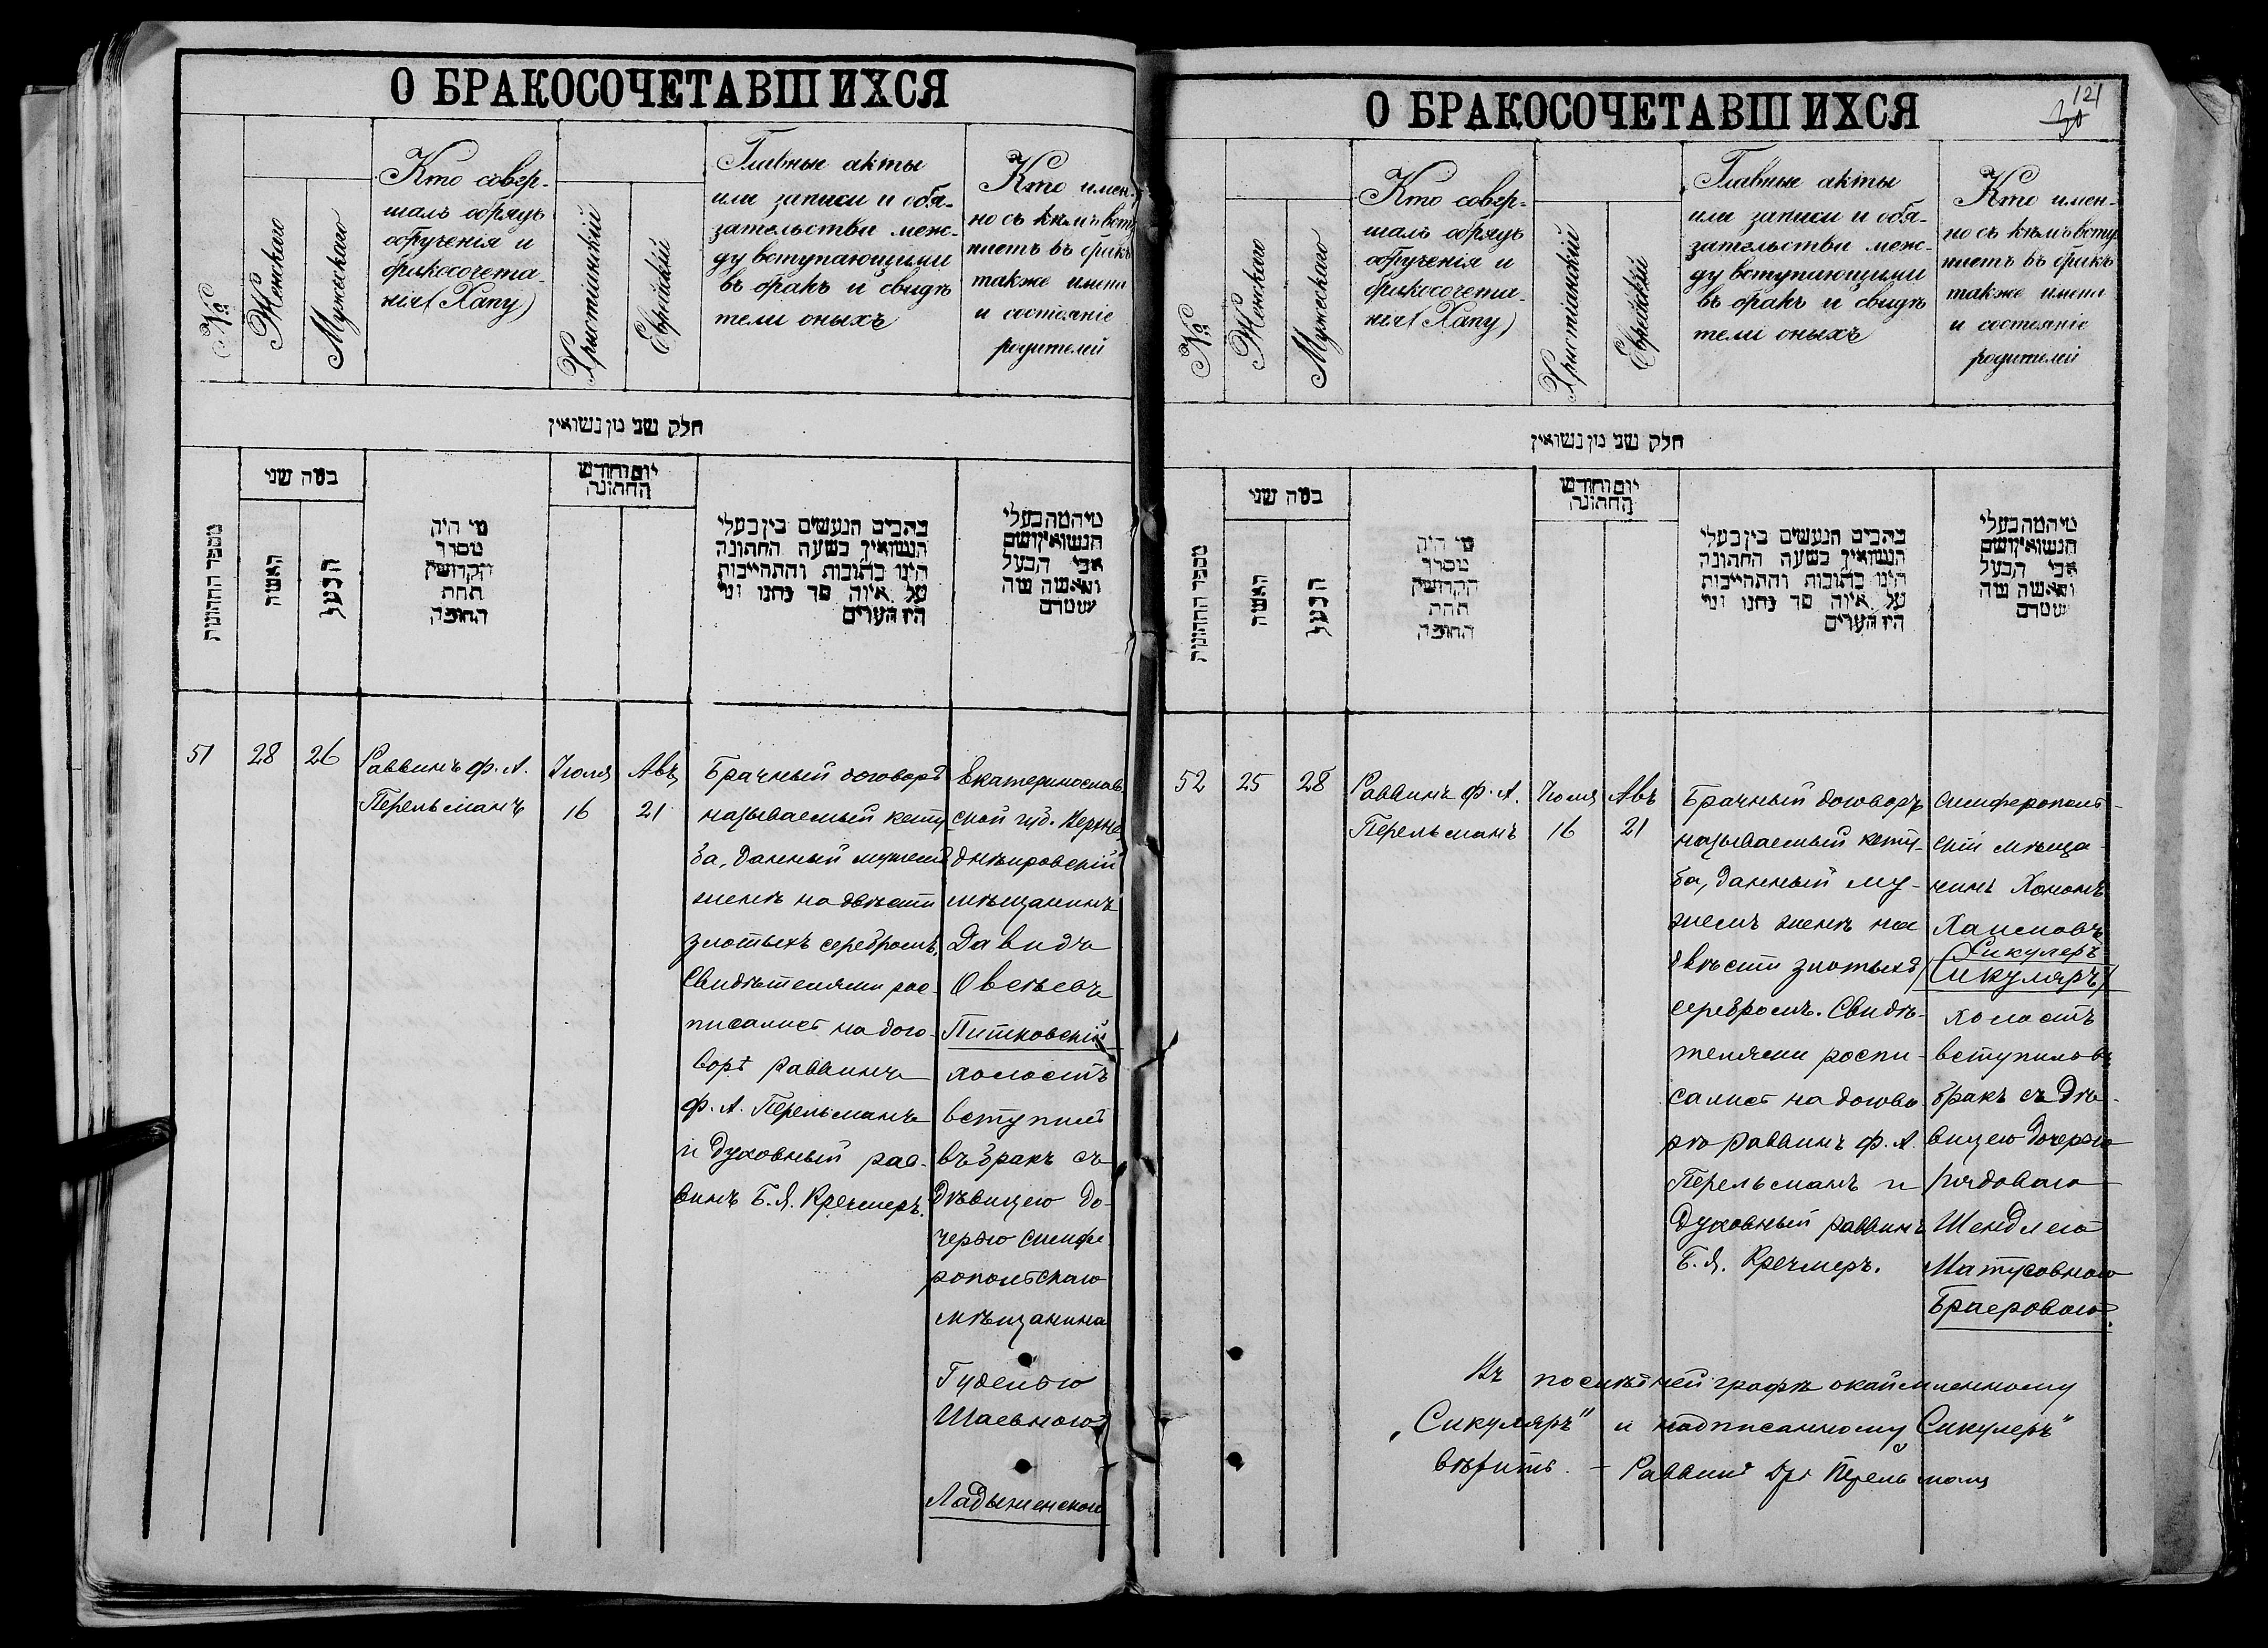 О БРАКОСОЧЕТАВШИХСЯ
№
Женскаго
Мужескаго
Кто совер-
шалъ обрядъ
обрученія и
бракосочета-
нія (Хапу)
Христіанскій
Еврейскій
Главные акты
или записи и обя-
зательства меж-
ду вступающими
въ бракъ и свидѣ
тели оныхъ
Кто имен-
но съ кѣмъ всту
паетъ въ бракъ
также имена
и состояніе
родителей
חלק שני מן נשואין
מספר החתונות
במה שני
האשה
הבעל
מי היה
מסדר
הקדושין
תחת
החופה
יום וחודש
החתונה
כתבים הנעשים בין בעלי
הנשואין בשעה החתונה
היינו כתובות והתחייבות
על איזה סך נתנו ומי
היו העדים
מיהמה בעלי
הנשואין ושם
אבי הבעל
והאשה מה
שטרם
51
28
26
Раввинъ Ф. А.
Перельманъ
Іюля
16
Авъ
21
Брачный договоръ
называемый кету
ба, данный мужемъ
женѣ на двѣсти
злотыхъ серебромъ.
Свидѣтелями рос-
писались на дого-
ворѣ раввинъ
Ф. А. Перельманъ
и духовный рав-
винъ Б. Я. Кречмеръ.
Екатеринослав
ской губ. Верхне
днѣпровскій
мѣщанинъ
Давидъ
Овсѣевъ
Питковскій
холостъ
вступилъ
въ бракъ съ
дѣвицею до-
черью симфе
ропольскаго
мѣщанина
Гуделью
Шаевною
Ладыженскою
О БРАКОСОЧЕТАВШИХСЯ
121
№
Женскаго
Мужескаго
Кто совер-
шалъ обрядъ
обрученія и
бракосочета-
нія (Хапу)
Христіанскій
Еврейскій
Главные акты
или записи и обя-
зательства меж-
ду вступающими
въ бракъ и свидѣ
тели оныхъ
Кто имен-
но съ кѣмъ всту
паетъ въ бракъ
также имена
и состояніе
родителей
חלק שני מן נשואין
מספר החתונות
במה שני
האשה
הבעל
מי היה
מסדר
הקדושין
תחת
החופה
יום וחודש
החתונה
כתבים הנעשים בין בעלי
הנשואין בשעה החתונה
היינו כתובות והתחייבות
על איזה סך נתנו ומי
היו העדים
מיהמה בעלי
הנשואין ושם
אבי הבעל
והאשה מה
שטרם
52
25
28
Раввинъ Ф. А.
Перельманъ
Іюля
16
Авъ
21
Брачный договоръ
называемый кету-
ба, данный му-
жемъ женѣ на
двѣсти злотыхъ
серебромъ. Свидѣ-
телями роспи-
сались на догово
рѣ раввинъ Ф. А.
Перельманъ и
духовный раввинъ
Б. Я. Кречмеръ.
Симферополь-
скій мѣща-
нинъ Хононъ
Хаимовъ
Сикулеръ
(Сикуляръ)
холостъ
вступилъ въ
бракъ съ дѣ-
вицею дочерью
рядоваго
Шендлею
Матусовною
Браеровою.
Въ послѣдней графѣ окаймленному
„Сикуляръ" и надписанному Сикулеръ"
вѣрить. — Раввинъ Др Перельманъ